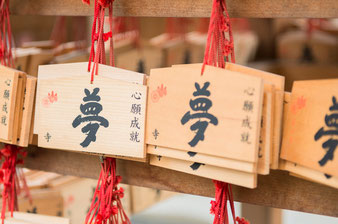 心願成就
心願成就
夢
寺
心願成就
夢
夢